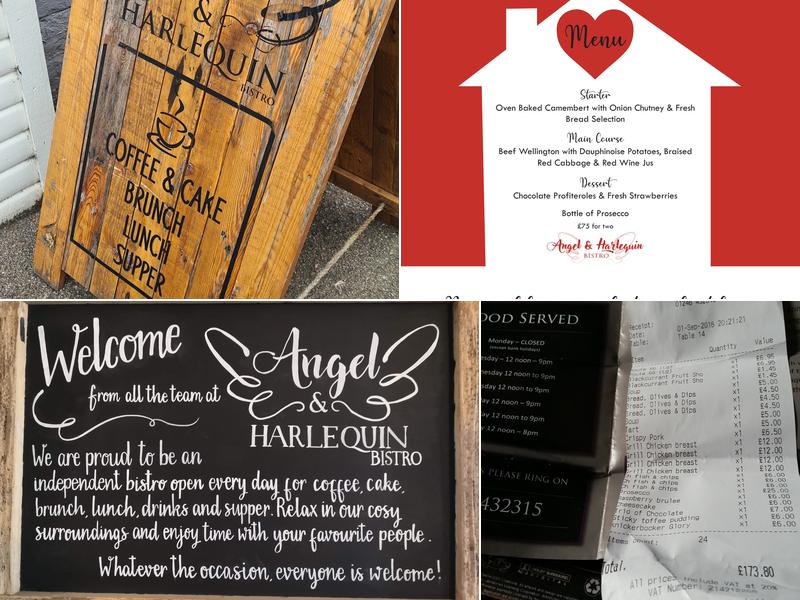 &
HARLEQUIN
BISTRO
COFFEE & CAKE
BRUNCH
LUNCH
SUPPER
Menu
Starter
Oven Baked Camembert with Onion Chutney & Fresh
Bread Selection
Main Course
Beef Wellington with Dauphinoise Potatoes, Braised
Red Cabbage & Red Wine Jus
Dessert
Chocolate Profiteroles & Fresh Strawberries
Bottle of Prosecco
£75 for two
Angel & Harlequin
BISTRO
Welcome
from all the team at
Angel
&
HARLEQUIN
BISTRO
We are proud to be an
independent bistro open every day for coffee, cake,
brunch, lunch, drinks and supper. Relax in our cosy
surroundings and enjoy time with your favourite people.
Whatever the occasion, everyone is welcome!
OOD SERVED
Monday – CLOSED
(except bank holidays)
sday – 12 noon – 9pm
day 12 noon to 9pm
day 12 noon to 9pm
y 12 noon – 9pm
day 12 noon to 9pm
y 12 noon – 8pm
PLEASE RING ON
432315
Receipt:
Date: 01-Sep-2016 20:21:21
Table: Table 14
Item Quantity Value
x1 £6.95
x1 £6.95
Blackcurrant Fruit Sho x1 £1.45
Blackcurrant Fruit Sho x1 £1.45
Soup x1 £5.00
Bread, Olives & Dips x1 £4.50
Bread, Olives & Dips x1 £4.50
Soup x1 £5.00
Tart x1 £5.00
Crispy Pork x1 £6.50
Grill Chicken breast x1 £12.00
Grill Chicken breast x1 £12.00
Grill Chicken breast x1 £12.00
fish & chips x1 £6.00
fish & chips x1 £6.00
Prosecco x1 £25.00
Raspberry brulee x1 £6.00
Cheesecake x1 £6.00
Trio of Chocolate x1 £7.00
Sticky toffee pudding x1 £6.00
Knickerbocker Glory x1 £6.00
Items Count: 24
Total. £173.80
All prices include VAT at 20%
VAT Number: